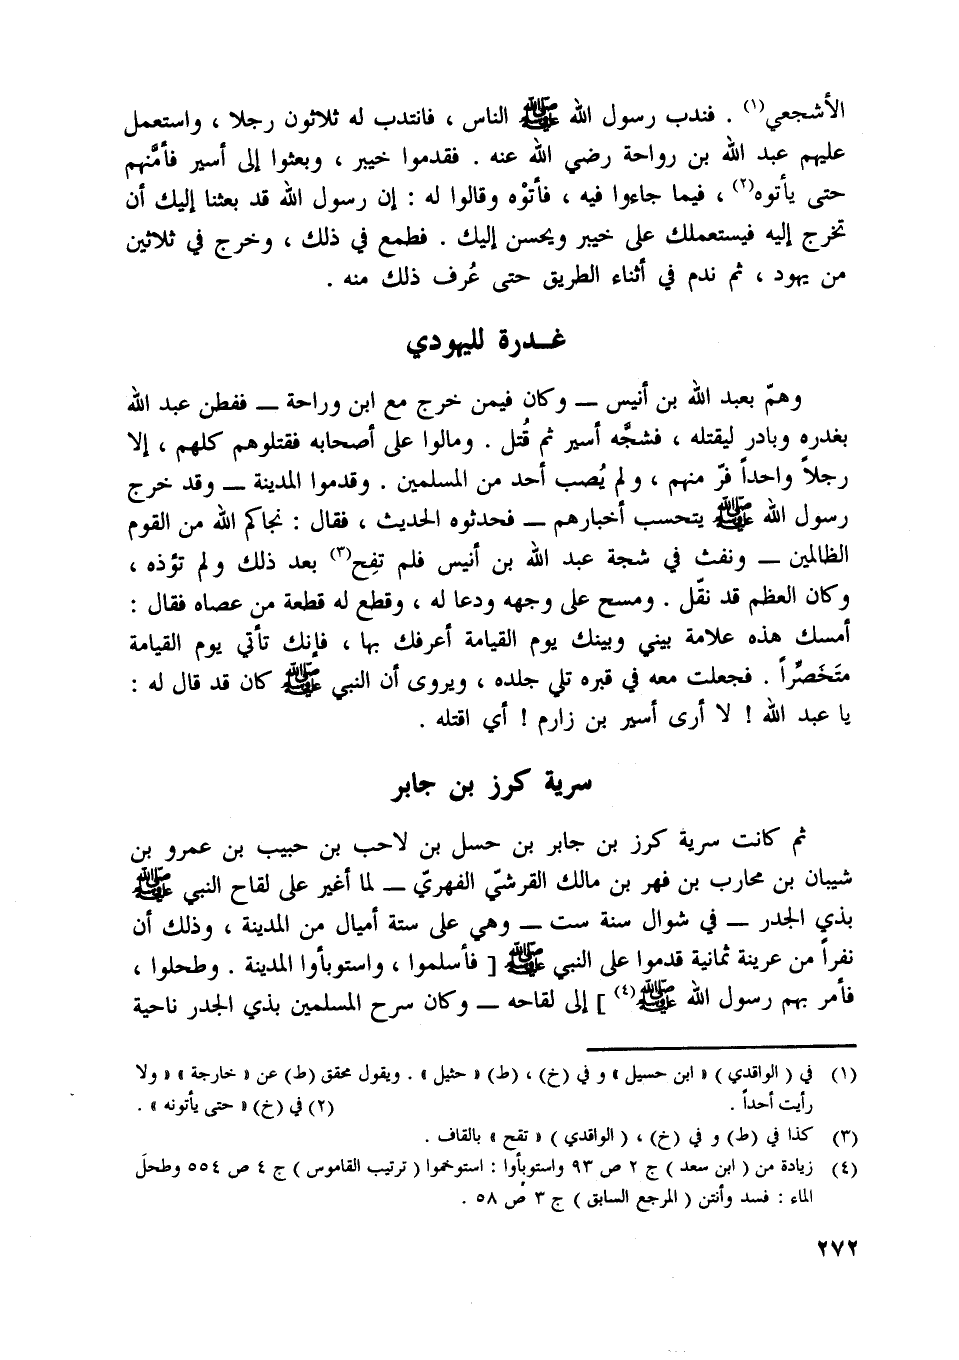 الأشجعي(١) . فندب رسول الله ﷺ الناس ، فانتدب له ثلاثون رجلا ، واستعمل
عليهم عبد الله بن رواحة رضي الله عنه . فقدموا خيبر ، وبعثوا إلى أسير فأمَّنهم
حتى يأتوه(٢) ، فيما جاءوا فيه ، فأتوْه وقالوا له : إن رسول الله قد بعثنا إليك أن
تخرج إليه فيستعملك على خيبر ويحسن إليك . فطمع في ذلك ، وخرج في ثلاثين
من يهود ، ثم ندم في أثناء الطريق حتى عُرف ذلك منه .
غـدرة لليهودي
وهمّ بعبد الله بن أنيس ــ وكان فيمن خرج مع ابن وراحة ــ ففطن عبد الله
بغدره وبادر ليقتله ، فشجَّه أسير ثم قُتل . ومالوا على أصحابه فقتلوهم كلهم ، إلا
رجلاً واحداً فرّ منهم ، ولم يُصب أحد من المسلمين . وقدموا المدينة ــ وقد خرج
رسول الله ﷺ يتحسب أخبارهم ــ فحدثوه الحديث ، فقال : نجاكم الله من القوم
الظالمين ــ ونفث في شجة عبد الله بن أنيس فلم تفِح(٣) بعد ذلك ولم تؤذه ،
وكان العظم قد نقّل . ومسح على وجهه ودعا له ، وقطع له قطعة من عصاه فقال :
أمسك هذه علامة بيني وبينك يوم القيامة أعرفك بها ، فإنك تأتي يوم القيامة
متَخَصرِّاً . فجعلت معه في قبره تلي جلده ، ويروى أن النبي ﷺ كان قد قال له :
يا عبد الله ! لا أرى أسير بن زارم ! أي اقتله .
سرية كرز بن جابر
ثم كانت سرية كرز بن جابر بن حسل بن لاحب بن حبيب بن عمرو بن
شيبان بن محارب بن فهر بن مالك القرشيّ الفهريّ ــ لما أغير على لقاح النبي ﷺ
بذي الجدر ــ في شوال سنة ست ــ وهي على ستة أميال من المدينة ، وذلك أن
نفراً من عرينة ثمانية قدموا على النبي ﷺ [ فأسلموا ، واستوبأوا المدينة . وطحلوا ،
فأمر بهم رسول الله ﷺ(٤) ] إلى لقاحه ــ وكان سرح المسلمين بذي الجدر ناحية
(١) في ( الواقدي ) « ابن حسيل » و في (خ) ، (ط) « حثيل » . ويقول محقق (ط) عن « خارجة » « ولا
رأيت أحداً . (٢) في (خ) « حتى يأتونه » .
(٣) كذا في (ط) و في (خ) ، ( الواقدي ) « تقح » بالقاف .
(٤) زيادة من ( ابن سعد ) ج ٢ ص ٩٣ واستوبأوا : استوخموا ( ترتيب القاموس ) ج ٤ ص ٥٥٤ وطحلَ
الماء : فسد وأنتن ( المرجع السابق ) ج ٣ ص ٥٨ .
٢٧٢